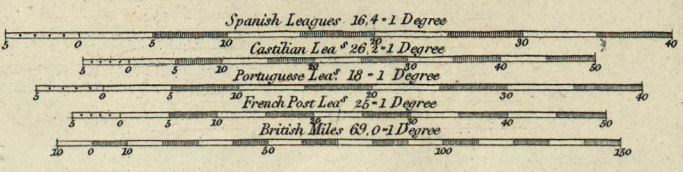 Spanish Leagues 16,4=1 Degree
5 0 5 10 20 30 40
Castilian Leaˢ 26,2=1 Degree
5 0 5 10 20 30 40 50
Portuguese Leaˢ 18=1 Degree
5 0 5 10 20 30 40
French Post Leaˢ 25=1 Degree
5 0 5 10 20 30 40 50
British Miles 69,0=1 Degree
10 0 10 50 100 150